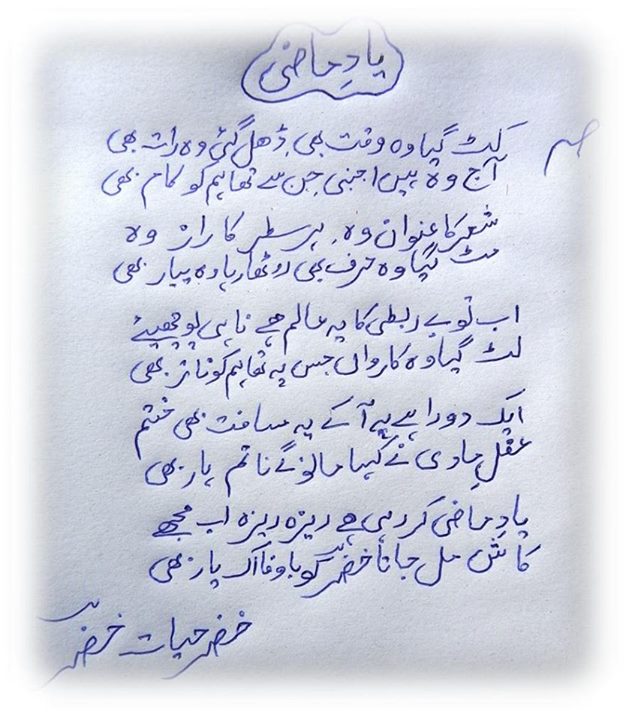 یادِ ماضی
کٹ گیا وہ وقت بھی، ڈھل گئی وہ رات بھی
آج وہ ہیں اجنبی جن سے تھا ہم کو کام بھی
شعر کا عنوان وہ، ہر سطر کا راز وہ
مٹ گیا وہ حرف بھی روٹھا رہا وہ پیار بھی
اب تو بے ربطی کا یہ عالم ہے نا ہی پوچھیئے
لٹ گیا وہ کارواں جس پہ تھا ہم کو ناز بھی
ایک دوراہے پہ آ کے یہ مسافت بھی ختم
عقلِ ہادی نے کہا مانو گے نا تم ہار بھی
یادِ ماضی کر رہی ہے ریزہ ریزہ اب مجھے
کاش مل جاتا خضرؔ کو باوفا اک یار بھی
خضر حیات خضرؔ